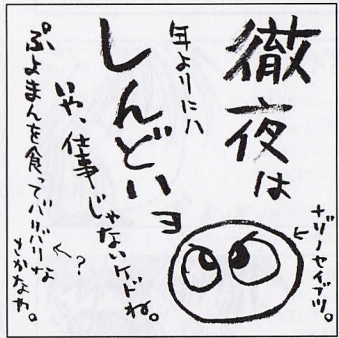 徹夜は
年よりにハ
しんどいヨ
いや、仕事じゃないケドね。
ぷよまんを食ってバリバリな
?
さかなや。
ナゾノセイブツ。